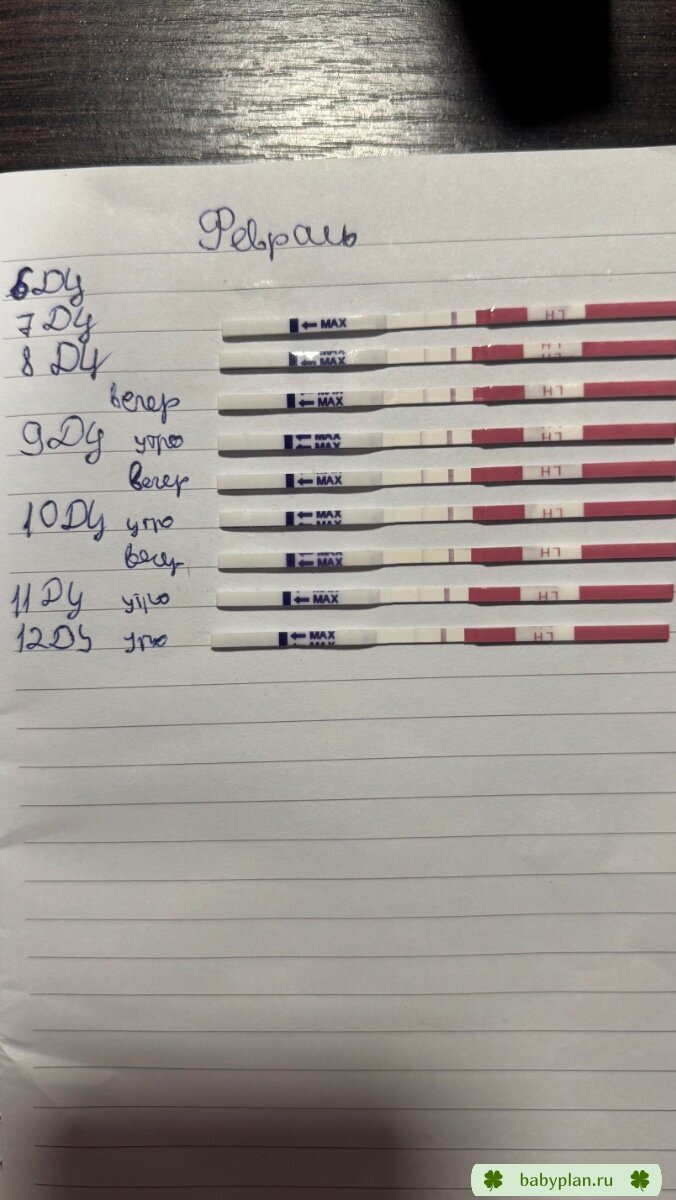 Февраль
6 ДЦ
7 ДЦ
← MAX LH
8 ДЦ
← MAX LH
вечер
← MAX LH
9 ДЦ утро
← MAX LH
вечер
← MAX LH
10 ДЦ утро
← MAX LH
вечер
← MAX LH
11 ДЦ утро
← MAX LH
12 ДЦ утро
← MAX LH
babyplan.ru